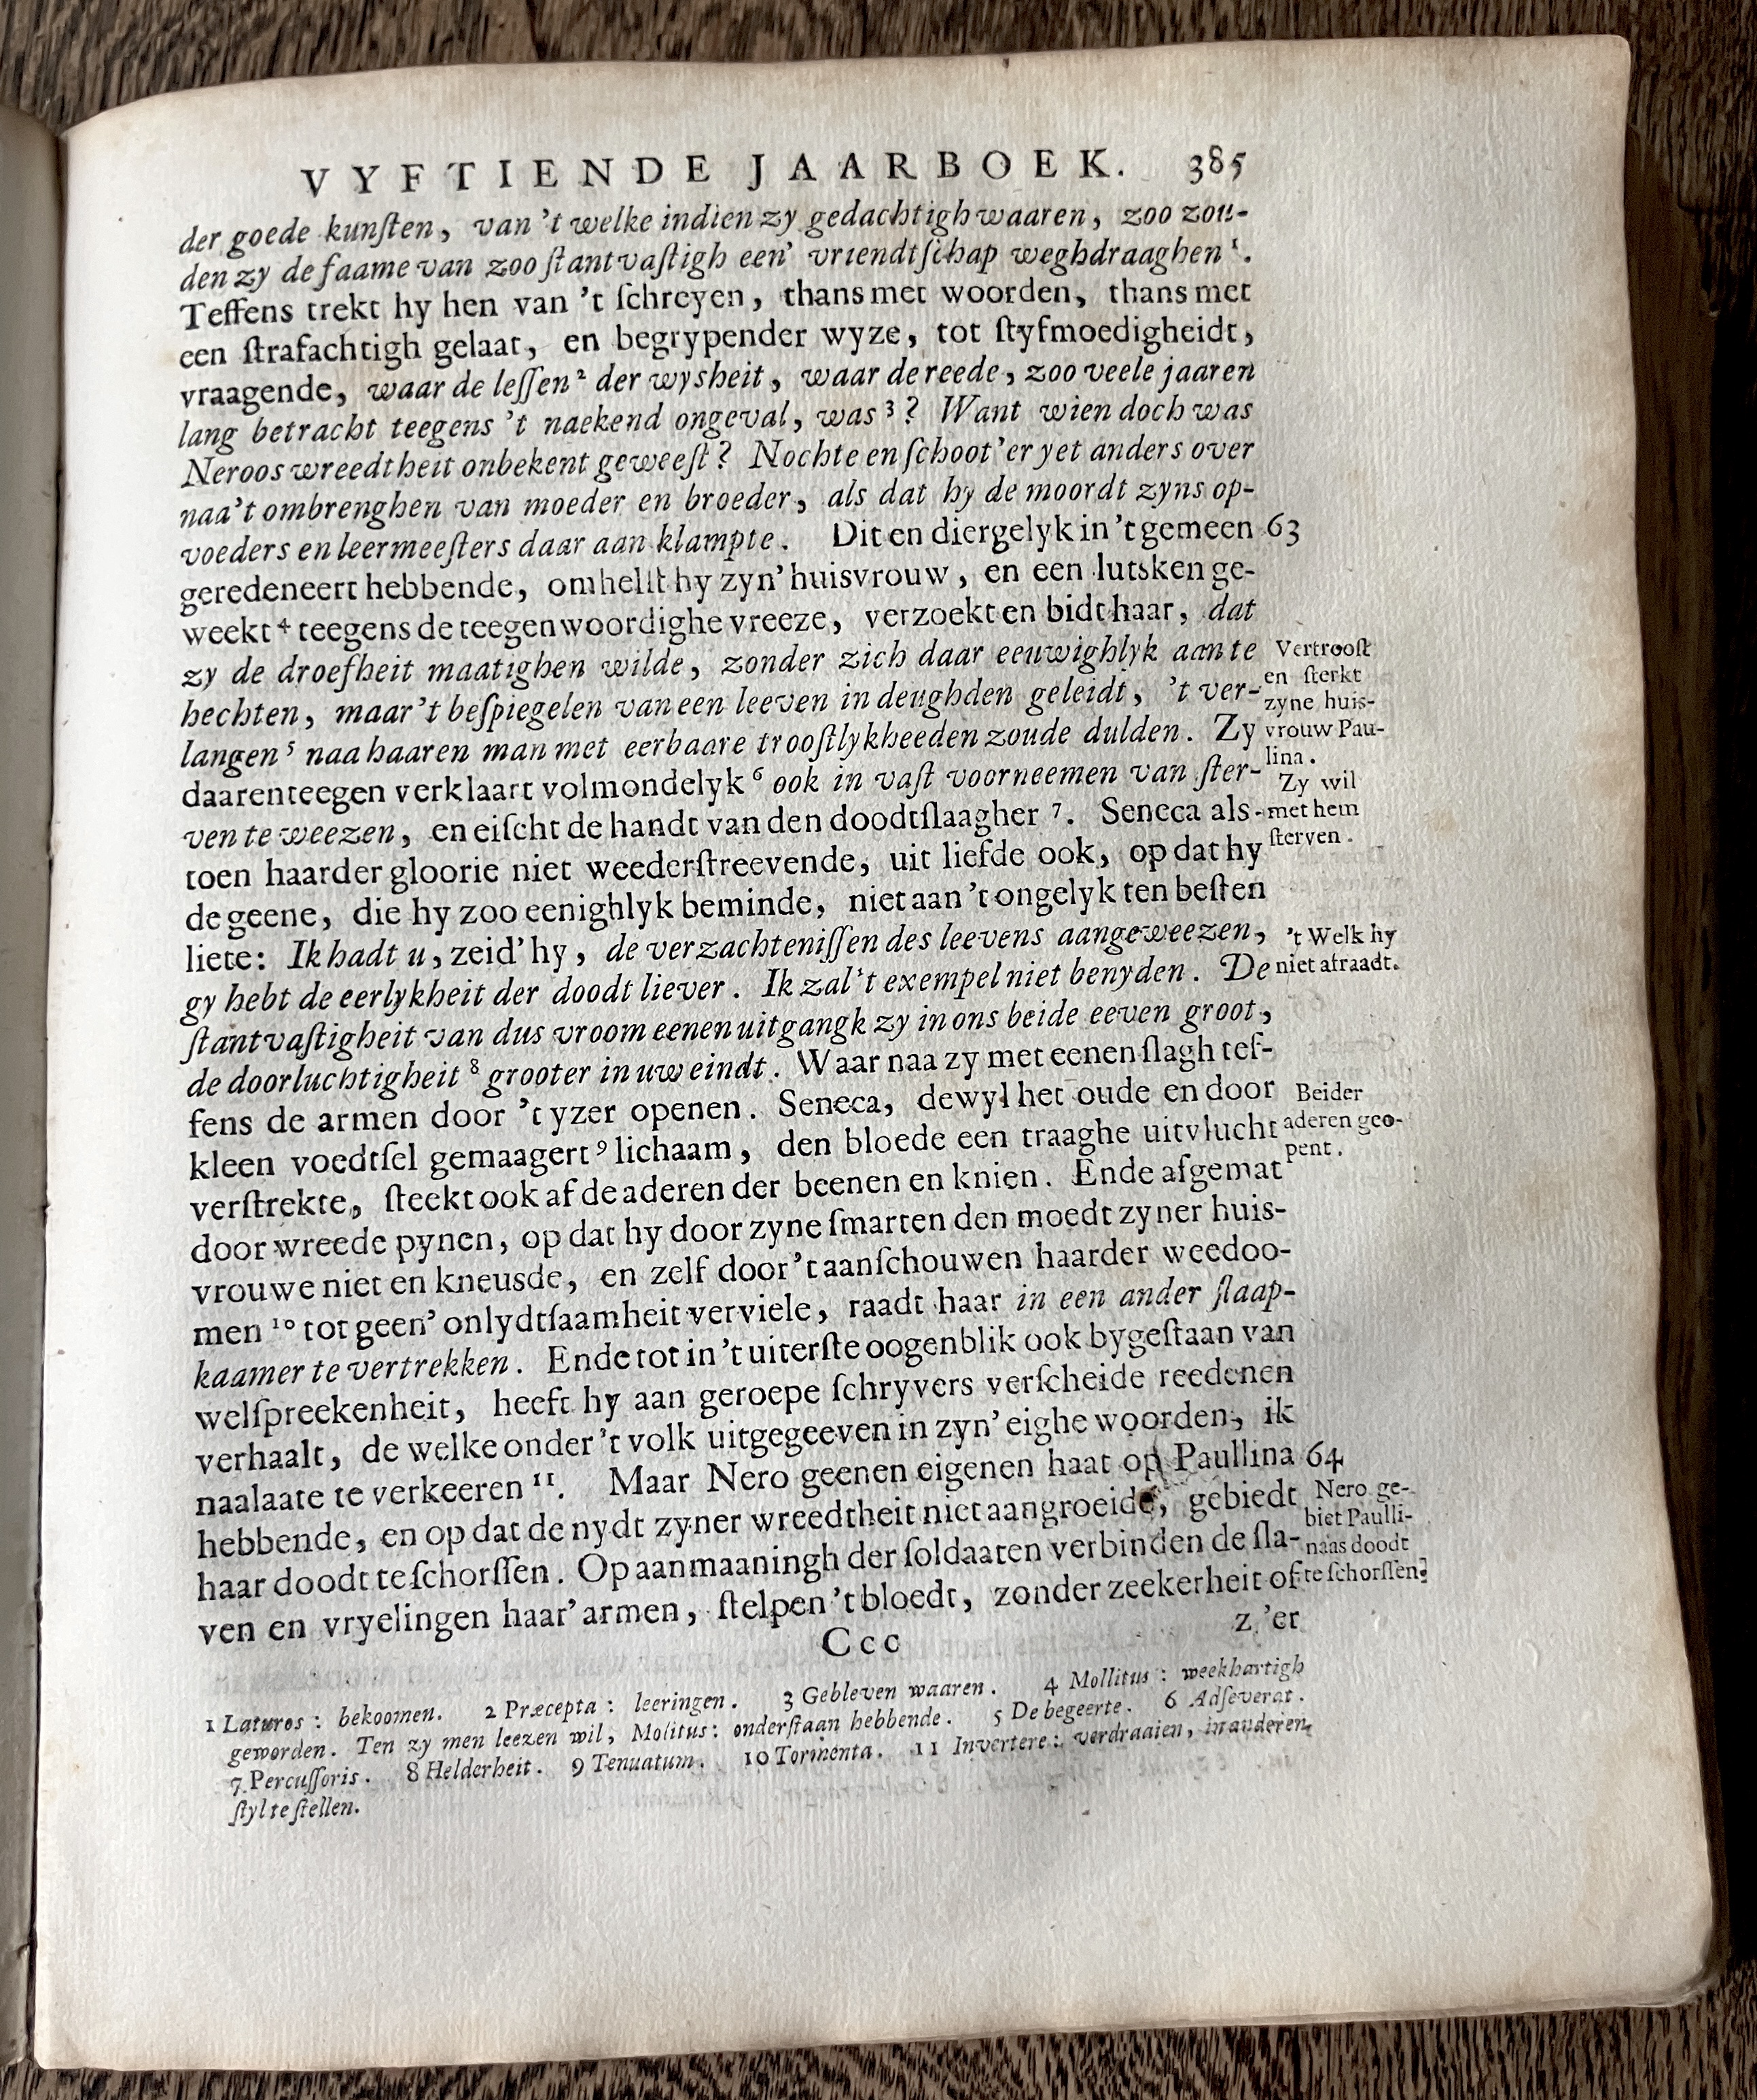 VYFTIENDE JAARBOEK. 385
der goede kunſten, van 't welke indien zy gedachtigh waaren, zoo zou-
den zy de faame van zoo ſtantvaſtigh een' vriendtſchap weghdraaghen ¹.
Teffens trekt hy hen van 't ſchreyen, thans met woorden, thans met
een ſtrafachtigh gelaat, en begrypender wyze, tot ſtyfmoedigheidt,
vraagende, waar de leſſen ² der wysheit, waar de reede, zoo veele jaaren
lang betracht teegens 't naekend ongeval, was ³? Want wien doch was
Neroos wreedtheit onbekent geweeſt? Nochte en ſchoot'er yet anders over
naa't ombrenghen van moeder en broeder, als dat hy de moordt zyns op-
voeders en leermeeſters daar aan klampte. Dit en diergelyk in 't gemeen 63
geredeneert hebbende, omhelſt hy zyn' huisvrouw, en een lutsken ge-
weekt ⁴ teegens de teegenwoordighe vreeze, verzoekt en bidt haar, dat
zy de droefheit maatighen wilde, zonder zich daar eeuwighlyk aan te
hechten, maar 't beſpiegelen van een leeven in deughden geleidt, 't ver-
langen ⁵ naa haaren man met eerbaare trooſtlykheeden zoude dulden. Zy
daarenteegen verklaart volmondelyk ⁶ ook in vaſt voorneemen van ſter-
ven te weezen, en eiſcht de handt van den doodtſlaagher ⁷. Seneca als-
toen haarder gloorie niet weederſtreevende, uit liefde ook, op dat hy
de geene, die hy zoo eenighlyk beminde, niet aan 't ongelyk ten beſten
liete: Ik hadt u, zeid' hy, de verzachteniſſen des leevens aangeweezen,
gy hebt de eerlykheit der doodt liever. Ik zal 't exempel niet benyden. De
ſtantvaſtigheit van dus vroom eenen uitgangk zy in ons beide eeven groot,
de doorluchtigheit ⁸ grooter in uw eindt. Waar naa zy met eenen ſlagh teſ-
fens de armen door 't yzer openen. Seneca, dewyl het oude en door
kleen voedtſel gemaagert ⁹ lichaam, den bloede een traaghe uitvlucht
verſtrekte, ſteekt ook af de aderen der beenen en knien. Ende afgemat
door wreede pynen, op dat hy door zyne ſmarten den moedt zyner huis-
vrouwe niet en kneusde, en zelf door 't aanſchouwen haarder weedoo-
men ¹⁰ tot geen' onlydtſaamheit verviele, raadt haar in een ander ſlaap-
kaamer te vertrekken. Ende tot in 't uiterſte oogenblik ook bygeſtaan van
welſpreekenheit, heeft hy aan geroepe ſchryvers verſcheide reedenen
verhaalt, de welke onder 't volk uitgegeeven in zyn' eighe woorden, ik
naalaate te verkeeren ¹¹. Maar Nero geenen eigenen haat op Paullina 64
hebbende, en op dat de nydt zyner wreedtheit niet aangroeide, gebiedt
haar doodt te ſchorſſen. Op aanmaaningh der ſoldaaten verbinden de ſla-
ven en vryelingen haar' armen, ſtelpen 't bloedt, zonder zeekerheit of
Ccc z.'er
Vertrooſt
en ſterkt
zyne huis-
vrouw Pau-
lina.
Zy wil
met hem
ſterven.
't Welk hy
niet afraadt.
Beider
aderen geo-
pent.
Nero ge-
biet Paulli-
naas doodt
te ſchorſſen.
1 Laturos: bekoomen. 2 Præcepta: leeringen. 3 Gebleven waaren. 4 Mollitus: weekhartigh
geworden. Ten zy men leezen wil, Molitus: onderſtaan hebbende. 5 De begeerte. 6 Adſeverat.
7 Percuſſoris. 8 Helderheit. 9 Tenuatum. 10 Tormenta. 11 Invertere: verdraaien, in anderen
ſtyl te ſtellen.